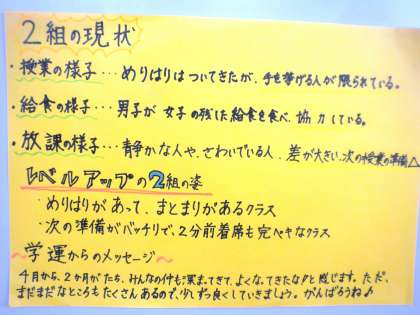 2組の現状
・授業の様子…めりはりはついてきたが、手を挙げる人が限られている。
・給食の様子…男子が女子の残した給食を食べ、協力している。
・放課の様子…静かな人や、さわいでいる人、差が大きい、次の授業の準備△
レベルアップの2組の姿
めりはりがあって、まとまりがあるクラス
次の準備がバッチリで、2分前着席も完ペキなクラス
〜学運からのメッセージ〜
4月から、2か月がたち、みんなの仲も深まってきて、よくなってきたな!!と感じます。ただ、
まだまだなところもたくさんあるので、少しずつ良くしていきましょう。がんばろうね♪